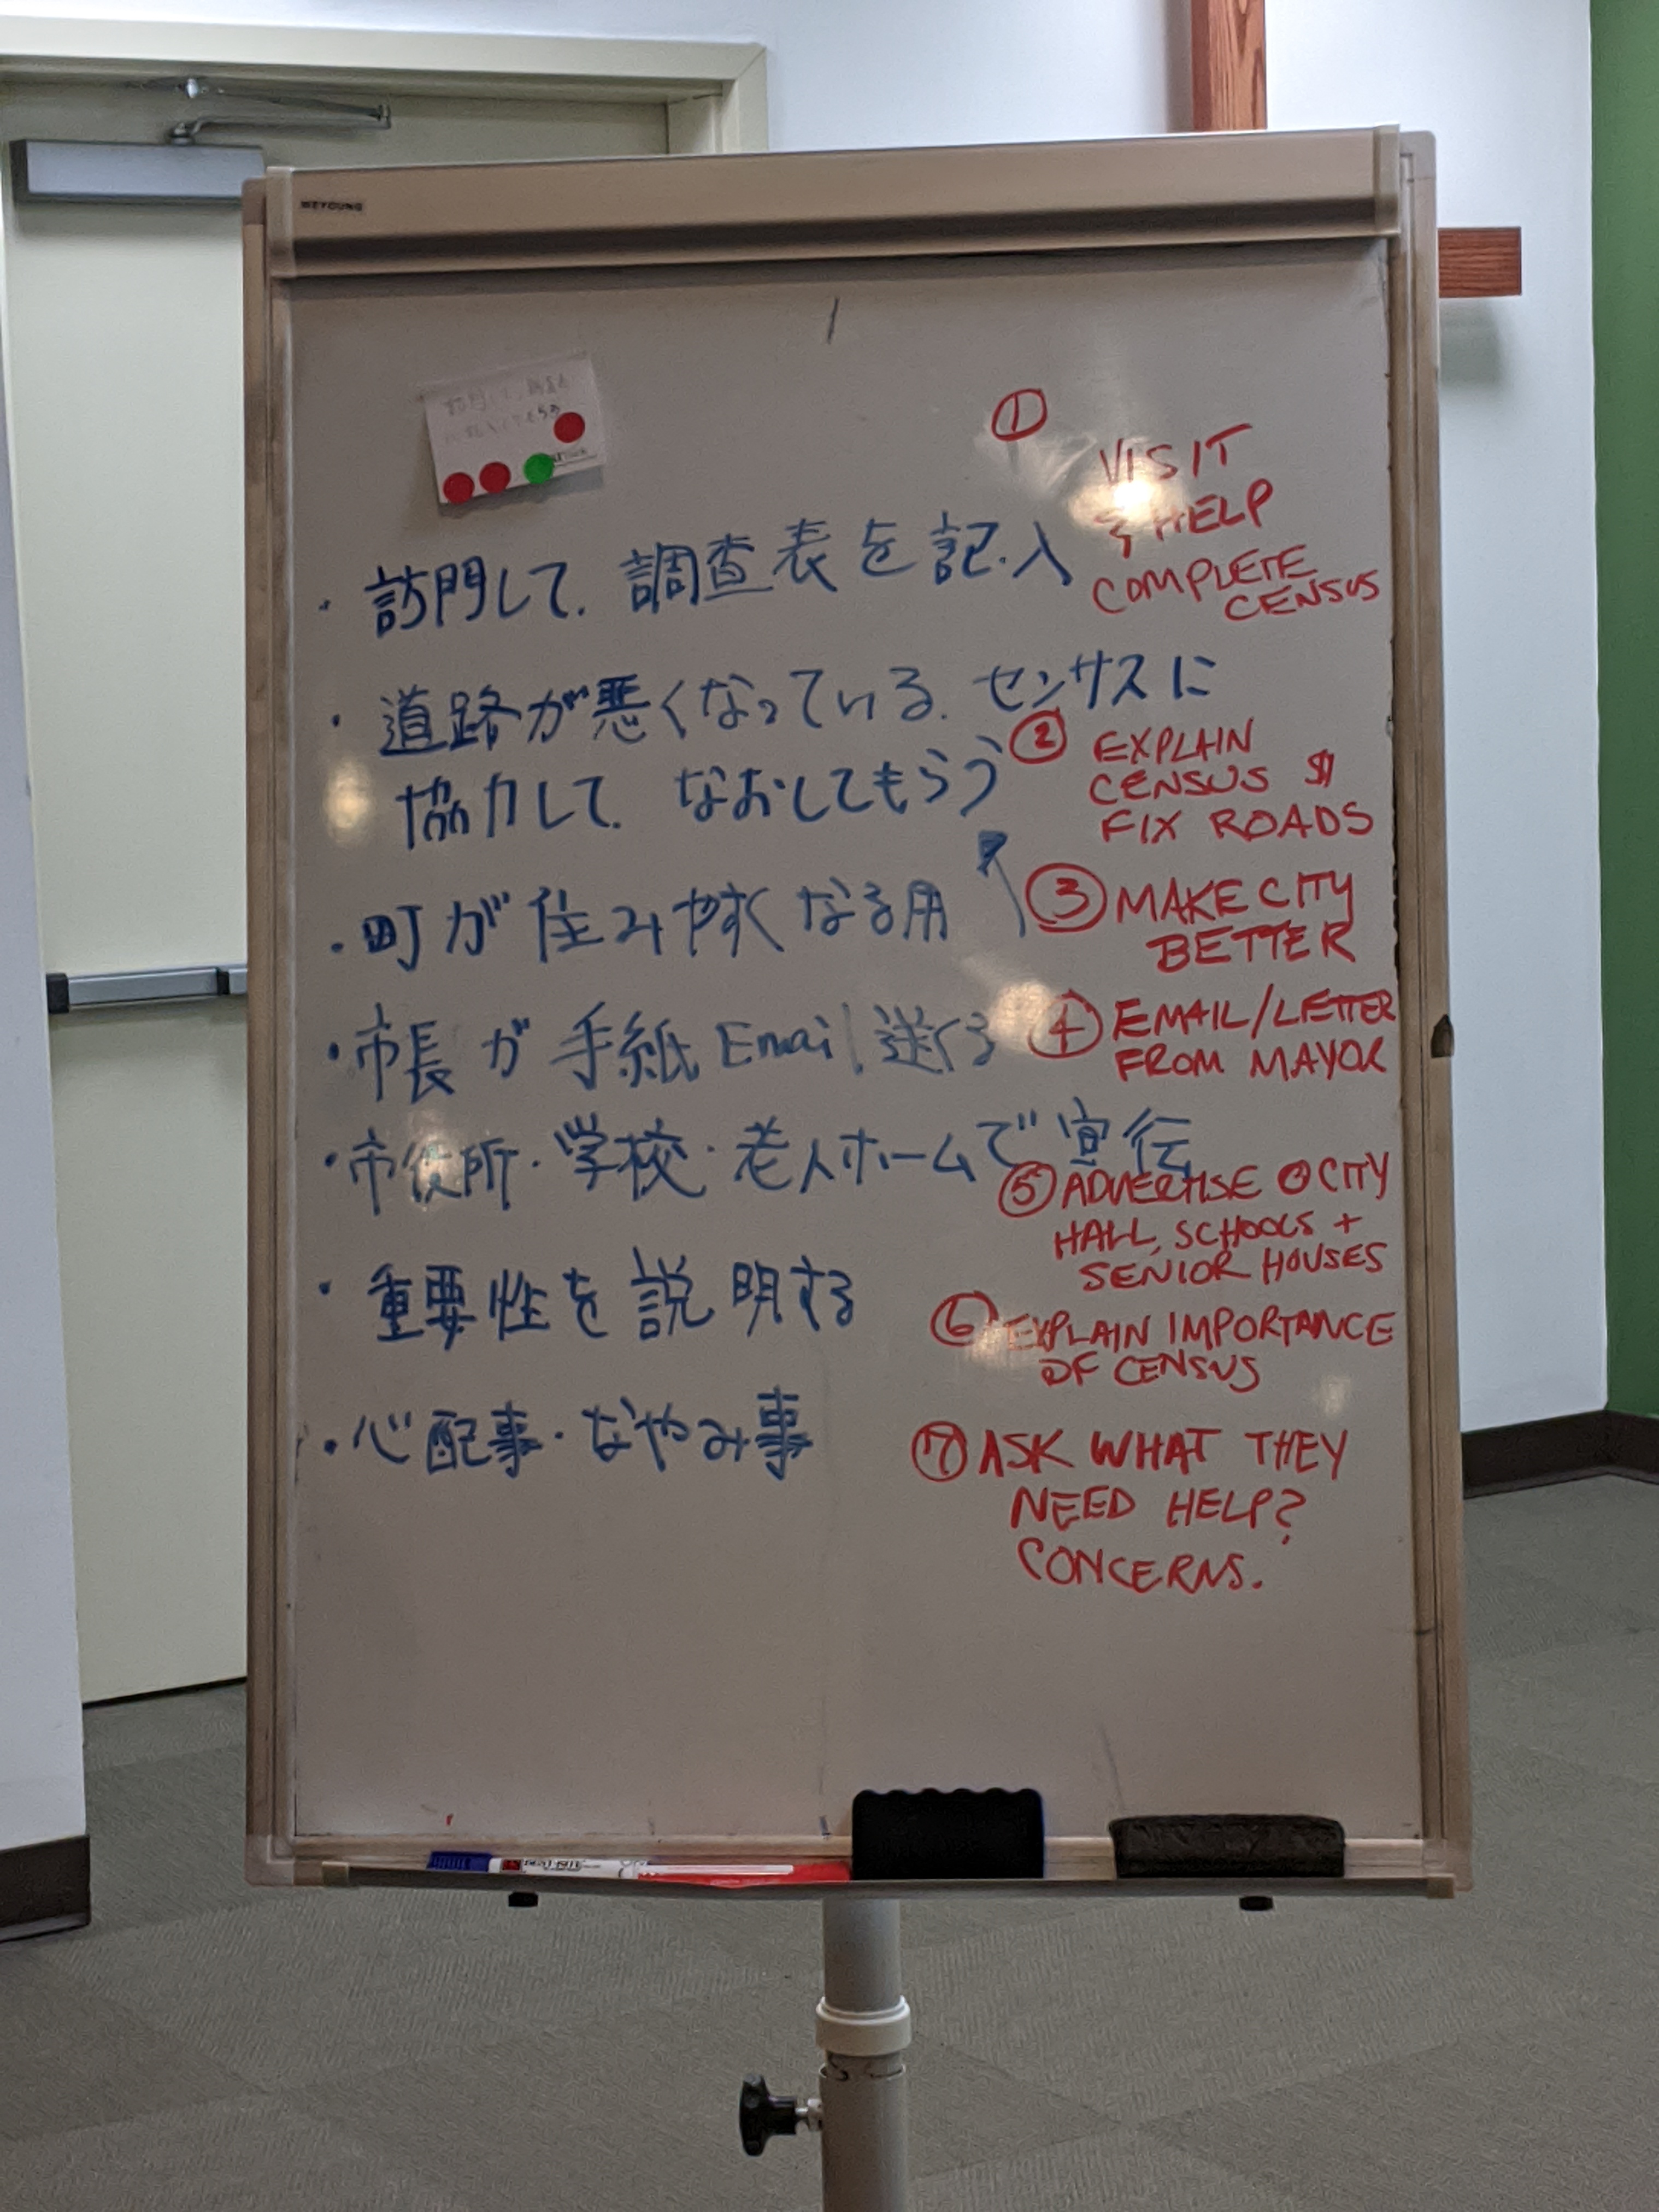 WEYOUNG
①
VISIT
& HELP
COMPLETE
CENSUS
・訪門して、調査表を記入
・道路が悪くなっている、センサスに
協力して、なおしてもらう
② EXPLAIN
CENSUS $
FIX ROADS
・町が住みやすくなる用
③ MAKE CITY
BETTER
・市長が手紙Email送くる
④ EMAIL/LETTER
FROM MAYOR
・市役所・学校・老人ホームで宣伝
⑤ ADVERTISE @ CITY
HALL, SCHOOLS +
SENIOR HOUSES
・重要性を説明する
⑥ EXPLAIN IMPORTANCE
OF CENSUS
・心配事・なやみ事
⑦ ASK WHAT THEY
NEED HELP?
CONCERNS.